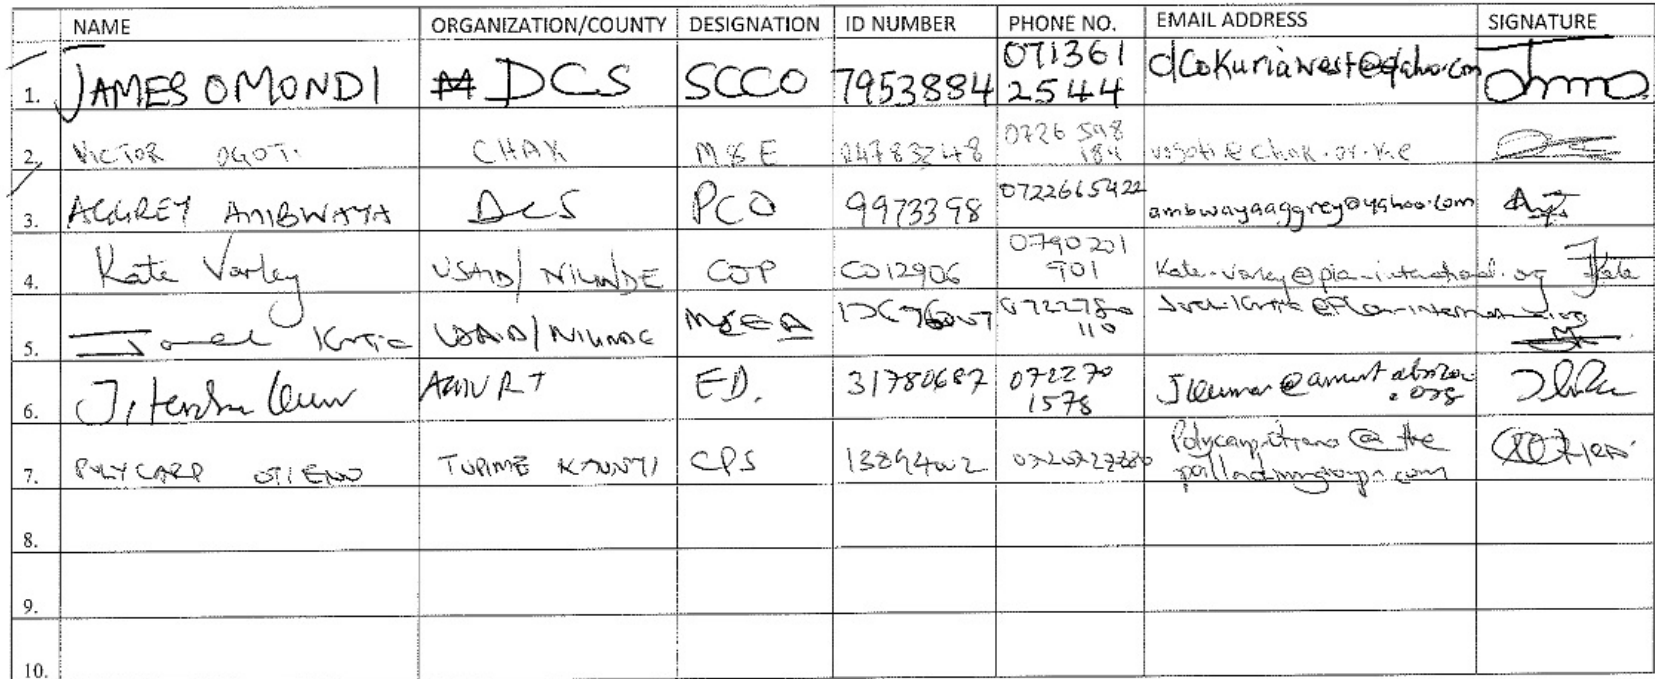 NAME ORGANIZATION/COUNTY DESIGNATION ID NUMBER PHONE NO. EMAIL ADDRESS SIGNATURE
1. JAMES OMONDI DCS SCCO 7953884 071361
2544 dcokuriawest@yahoo.com
2. VICTOR OGOTI CHAK M&E 0726 598
184 vogoti@chak.or.ke
3. AGGREY AMBWAYA DCS PCO 9973398 0722665422 ambwayaaggrey@yahoo.com
4. Kate Vorley USAID/NILINDE COP C012906 0790 201
901 Kate.vorley@plan-international.org Kate
5. USAID/NILINDE 0722780
110
6. Jitendra Kumar AMURT ED. 31780687 072270
1578 Jkumar@amurtabroad
.org
7. POLYCARP OTIENO TUPIME KAUNTI CPS 13894002 Polycarp.otieno@the
palladiumgroup.com
8.
9.
10.